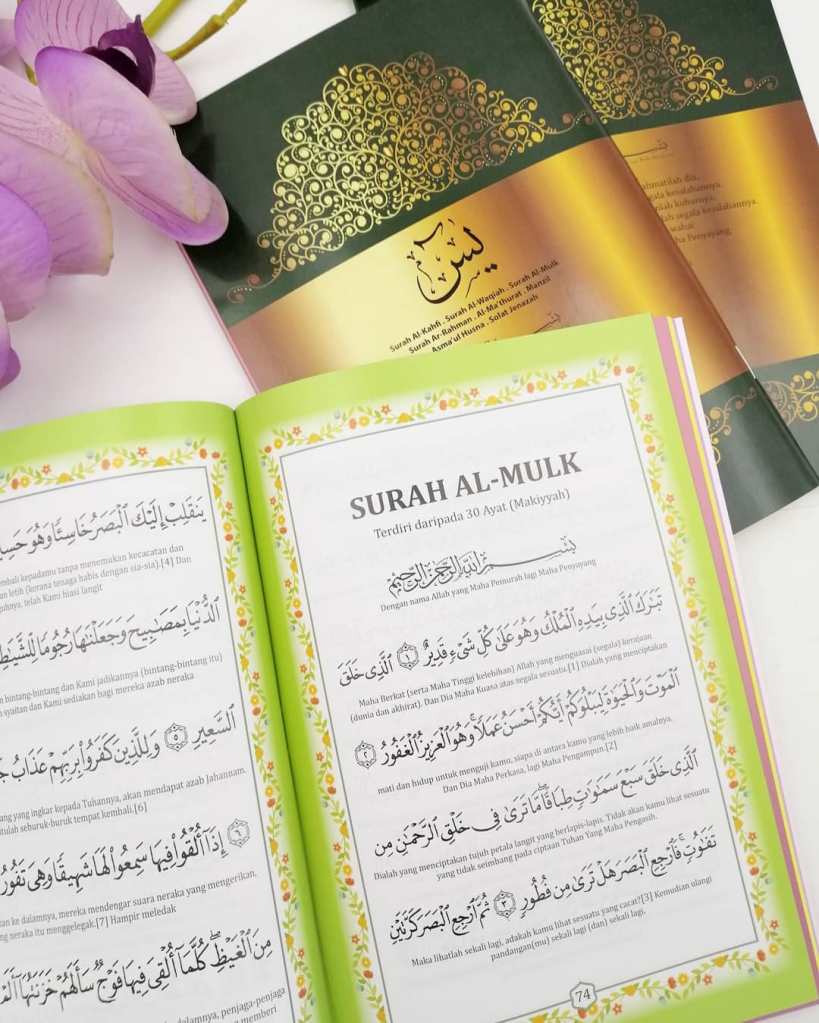 يس
Surah Al-Kahfi . Surah Al-Waqiah . Surah Al-Mulk
Surah Ar-Rahman . Al-Ma'thurat . Manzil
Asma'ul Husna . Solat Jenazah
rahmatilah dia,
segala kesalahannya,
lah kuburnya,
segala kesilahannya,
Penyayang
يَنقَلِبْ إِلَيْكَ ٱلْبَصَرُ خَاسِئًا وَهُوَ حَسِي
mbali kepadamu tanpa menemukan kecacatan dan
letih (kerana tenaga habis dengan sia-sia).[4] Dan
telah Kami hiasi langit
ٱلدُّنْيَا بِمَصَٰبِيحَ وَجَعَلْنَٰهَا رُجُومًا لِّلشَّيَٰطِ
bintang-bintang dan Kami jadikannya (bintang-bintang itu)
syaitan dan Kami sediakan bagi mereka azab neraka
ٱلسَّعِيرِ ٥ وَلِلَّذِينَ كَفَرُوا۟ بِرَبِّهِمْ عَذَابُ جَ
ang yang ingkar kepada Tuhannya, akan mendapat azab Jahannam.
itulah seburuk-buruk tempat kembali.[6]
٦ إِذَآ أُلْقُوا۟ فِيهَا سَمِعُوا۟ لَهَا شَهِيقًا وَهِىَ تَفُورُ
kan ke dalamnya, mereka mendengar suara neraka yang mengerikan,
ng neraka itu menggelegak.[7] Hampir meledak
مِنَ ٱلْغَيْظِ ۖ كُلَّمَآ أُلْقِىَ فِيهَا فَوْجٌ سَأَلَهُمْ خَزَنَتُهَآ أَلَمْ
dalamnya, penjaga-penjaga
memberi
SURAH AL-MULK
Terdiri daripada 30 Ayat (Makiyyah)
بِسْمِ ٱللَّهِ ٱلرَّحْمَٰنِ ٱلرَّحِيمِ
Dengan nama Allah yang Maha Pemurah lagi Maha Penyayang
تَبَٰرَكَ ٱلَّذِى بِيَدِهِ ٱلْمُلْكُ وَهُوَ عَلَىٰ كُلِّ شَىْءٍ قَدِيرٌ ١ ٱلَّذِى خَلَقَ
Maha Berkat (serta Maha Tinggi kelebihan) Allah yang menguasai (segala) kerajaan
(dunia dan akhirat). Dan Dia Maha Kuasa atas segala sesuatu.[1] Dialah yang menciptakan
ٱلْمَوْتَ وَٱلْحَيَوٰةَ لِيَبْلُوَكُمْ أَيُّكُمْ أَحْسَنُ عَمَلًا ۚ وَهُوَ ٱلْعَزِيزُ ٱلْغَفُورُ ٢
mati dan hidup untuk menguji kamu, siapa di antara kamu yang lebih baik amalnya,
Dan Dia Maha Perkasa, lagi Maha Pengampun.[2]
ٱلَّذِى خَلَقَ سَبْعَ سَمَٰوَٰتٍ طِبَاقًا ۖ مَّا تَرَىٰ فِى خَلْقِ ٱلرَّحْمَٰنِ مِن
Dialah yang menciptakan tujuh petala langit yang berlapis-lapis. Tidak akan kamu lihat sesuatu
yang tidak seimbang pada ciptaan Tuhan Yang Maha Pengasih.
تَفَٰوُتٍ ۖ فَٱرْجِعِ ٱلْبَصَرَ هَلْ تَرَىٰ مِن فُطُورٍ ٣ ثُمَّ ٱرْجِعِ ٱلْبَصَرَ كَرَّتَيْنِ
Maka lihatlah sekali lagi, adakah kamu lihat sesuatu yang cacat?[3] Kemudian ulangi
pandangan(mu) sekali lagi (dan) sekali lagi,
74